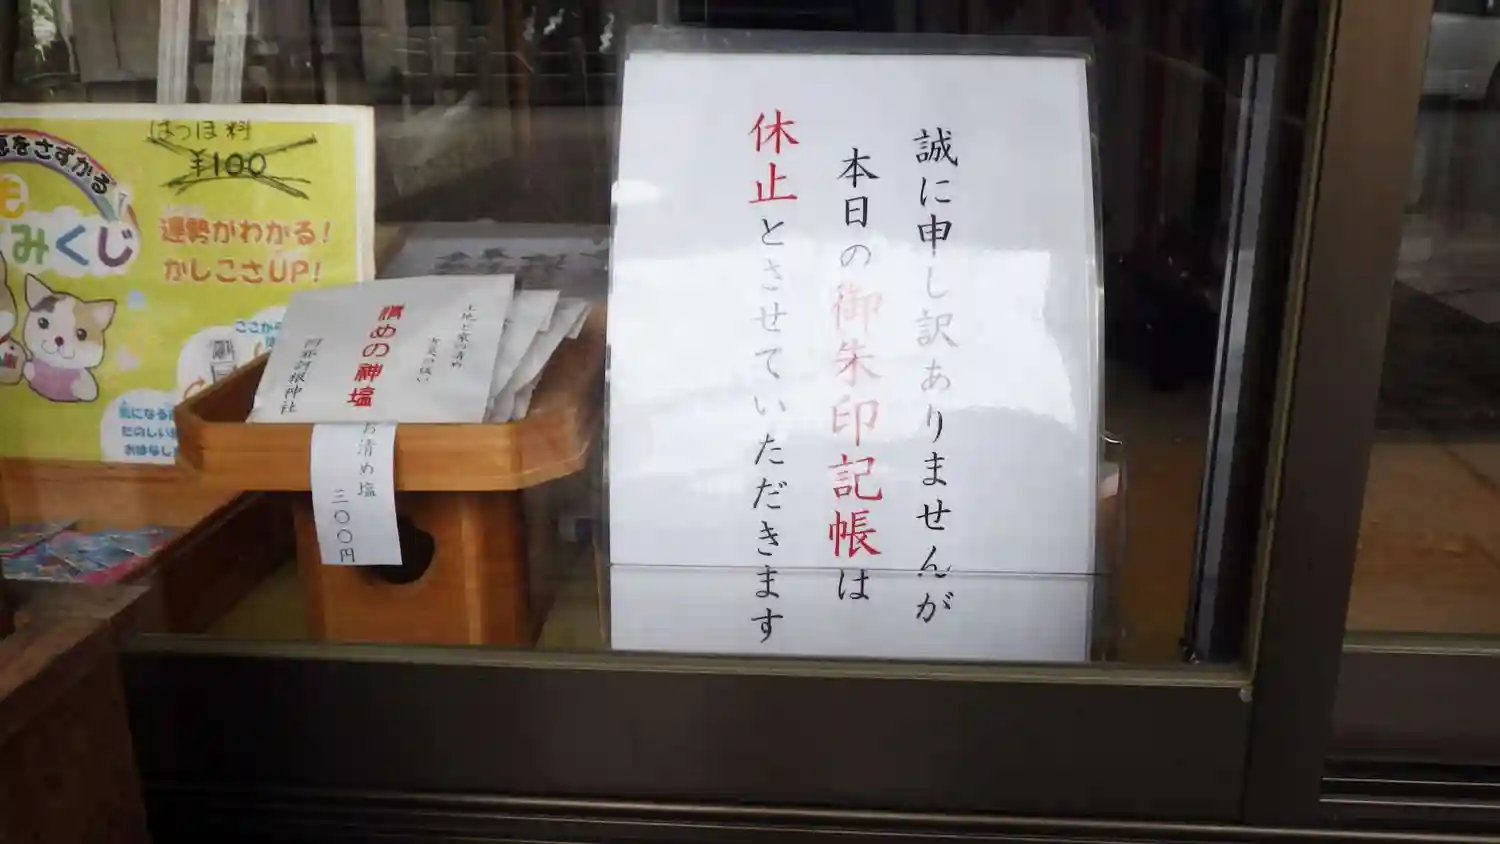 誠に申し訳ありませんが
本日の御朱印記帳は
休止とさせていただきます
はつほ料
¥100
をさずかる
みくじ
運勢がわかる!
かしこさUP!
ここから
気になる
たのしい
おはなし
土地と家の清め
清めの神塩
阿邪訶根神社
お清め塩
三〇〇円